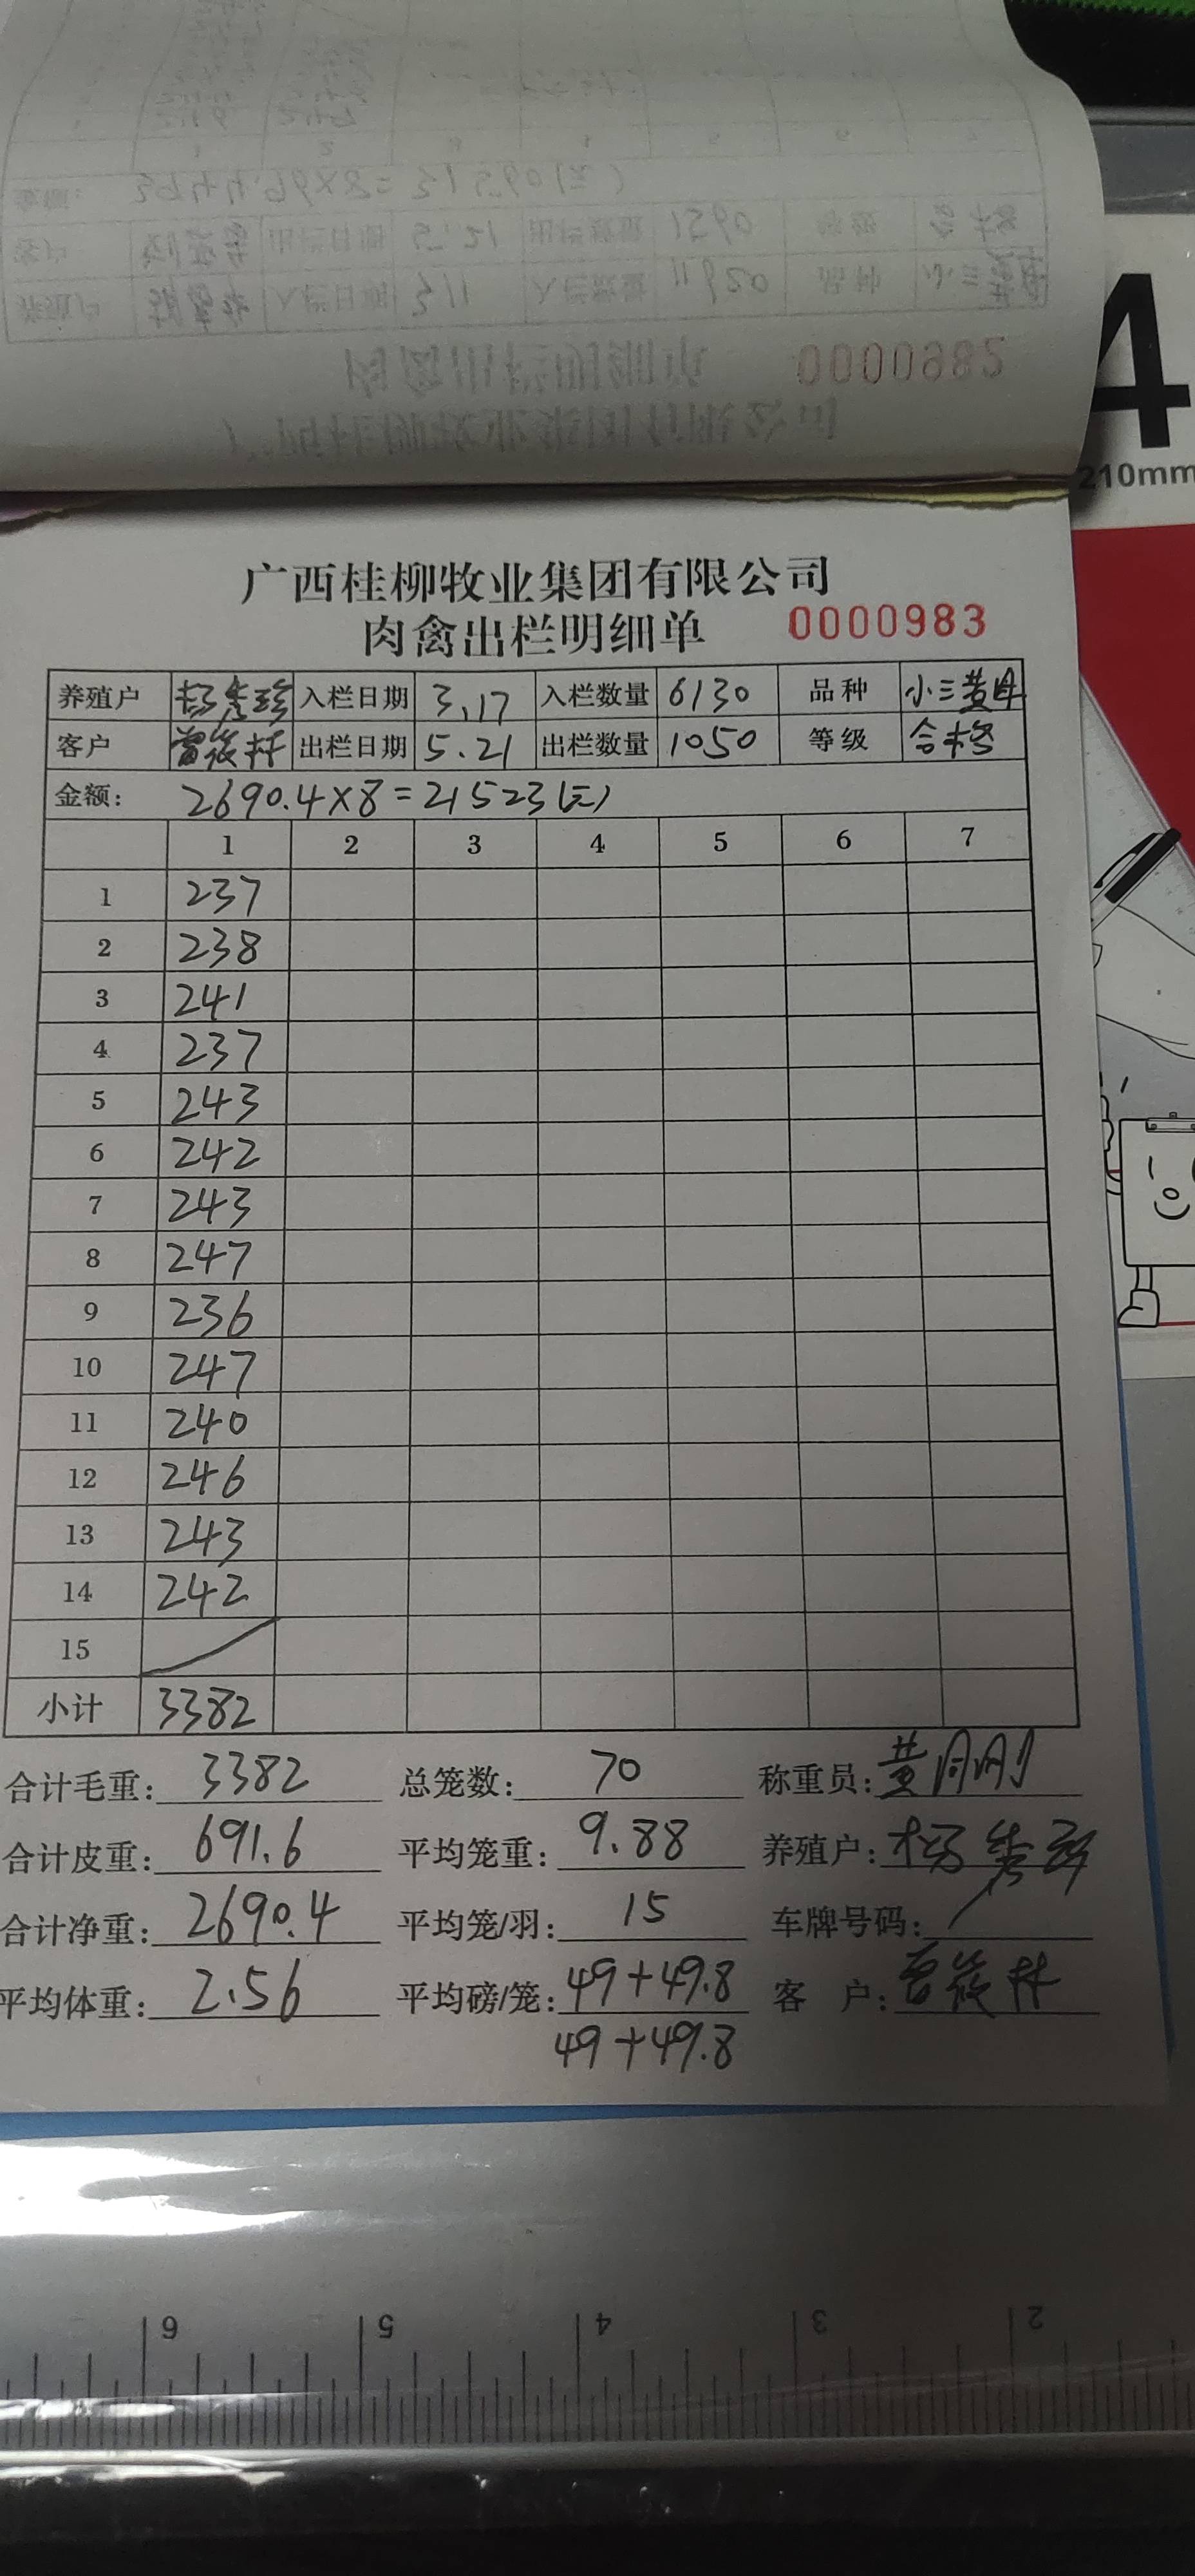 0000982
4
210mm
广西桂柳牧业集团有限公司
肉禽出栏明细单 0000983
养殖户 杨秀珍 入栏日期 3.17 入栏数量 6130 品种 小三黄母
客户 曾筱林 出栏日期 5.21 出栏数量 1050 等级 合格
金额: 2690.4×8=21523(元)
1 2 3 4 5 6 7
1 237
2 238
3 241
4 237
5 243
6 242
7 243
8 247
9 236
10 247
11 240
12 246
13 243
14 242
15
小计 3382
合计毛重: 3382 总笼数: 70 称重员: 黄月刚
合计皮重: 691.6 平均笼重: 9.88 养殖户: 杨秀珍
合计净重: 2690.4 平均笼/羽: 15 车牌号码: /
平均体重: 2.56 平均磅/笼: 49+49.8 客 户: 曾筱林
49+49.8
6 5 4 3 2